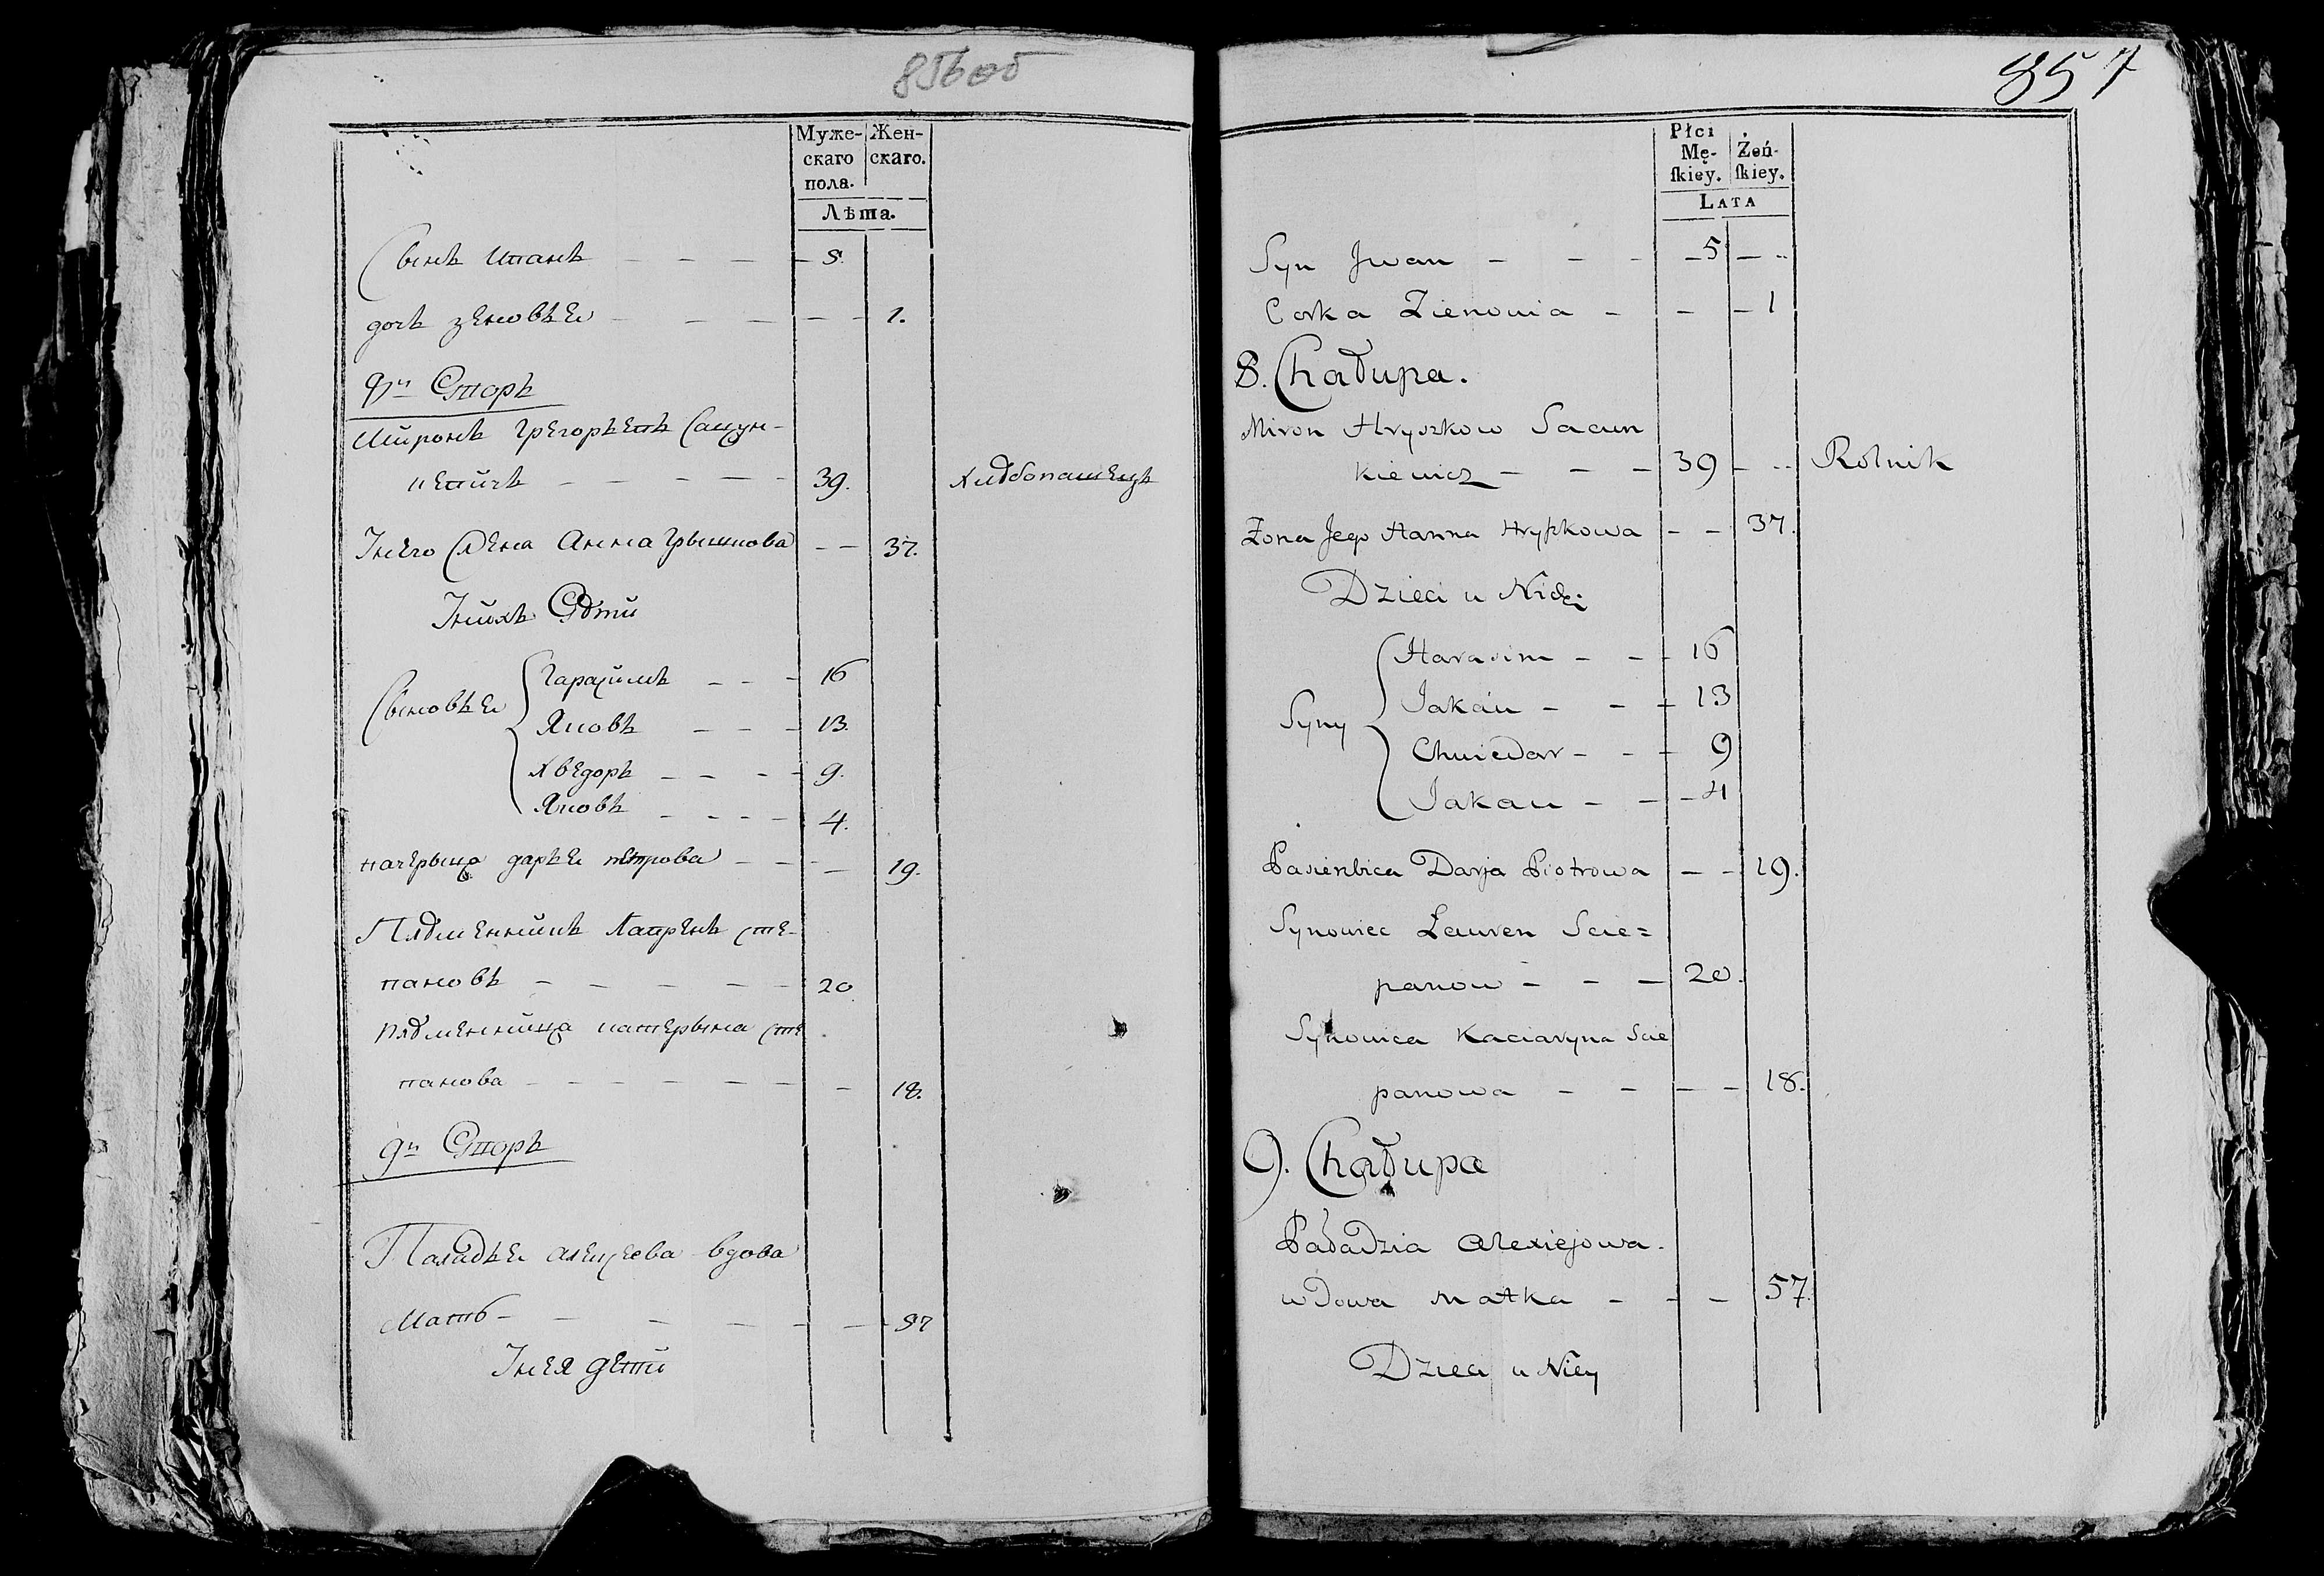 856 об
Муже- Жен-
скаго скаго.
пола.
Лѣта.
Сынъ Иванъ — — — — 5.
дочь Зеновья — — — — — 1.
8й Дворъ
Миронъ Грегорьевъ Сацун-
кевичъ — — — — — 39. хлѣбопашецъ
У него жена Анна Грышкова — — 37.
У нихъ Дѣти
Сыновья
Гарасимъ — — — 16
Яковъ — — — 13.
Хведоръ — — — — 9.
Яковъ — — — — 4.
пачерыца дарья петрова — — — 19.
Племенникъ Лавренъ сте-
пановъ — — — — — 20
племенница катерына сте
панова — — — — — — — 18.
9й Дворъ
Паладья алексеева вдова
Мать — — — — — — 57
У нея дети
857
Płci
Mę- Żeń-
ſkiey. ſkiey.
LATA
Syn Jwan — — — — 5 — ..
Corka Zienowia — — — 1
8. Chałupa.
Miron Hryszkow Sacun
kiewicz — — — 39 — .. Rolnik
Zona Jego Hanna Hryſzkowa — — 37.
Dzieci u Nich
Syny
Harasim — — — 16
Jakáu — — — 13
Chwiedar — — — 9
Jakau — — — 4
Pasierbica Darja Piotrowa — — 19.
Synowiec Łauren Scie=
panow — — — 20.
Synowica Kaciaryna Scie
panowa — — — — 18.
9. Chałupa
Paładzia Alexiejowa.
wdowa Matka — — — 57.
Dzieci u Niey